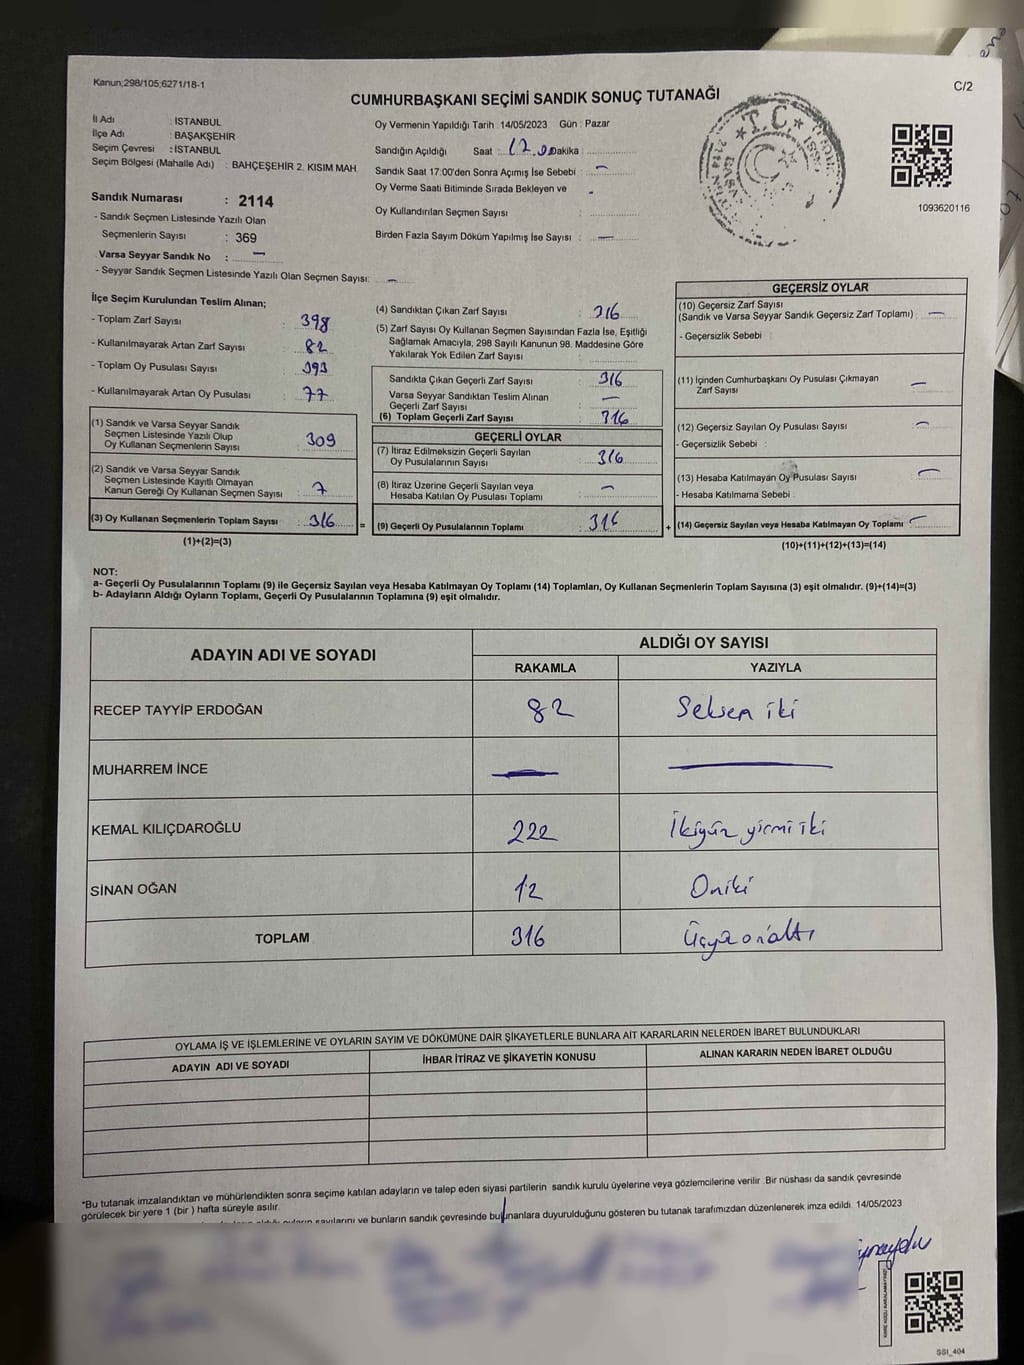 Kanun;298/105;6271/18-1
C/2
CUMHURBAŞKANI SEÇİMİ SANDIK SONUÇ TUTANAĞI
İl Adı : İSTANBUL
İlçe Adı : BAŞAKŞEHİR
Seçim Çevresi : İSTANBUL
Seçim Bölgesi (Mahalle Adı) : BAHÇEŞEHİR 2. KISIM MAH.
Sandık Numarası : 2114
- Sandık Seçmen Listesinde Yazılı Olan
Seçmenlerin Sayısı : 369
Varsa Seyyar Sandık No : —
- Seyyar Sandık Seçmen Listesinde Yazılı Olan Seçmen Sayısı: —
Oy Vermenin Yapıldığı Tarih : 14/05/2023 Gün : Pazar
Sandığın Açıldığı Saat : Dakika :
Sandık Saat 17:00'den Sonra Açımış İse Sebebi : —
Oy Verme Saati Bitiminde Sırada Bekleyen ve -
Oy Kullandırılan Seçmen Sayısı :
Birden Fazla Sayım Döküm Yapılmış İse Sayısı : —
T.C.
1093620116
İlçe Seçim Kurulundan Teslim Alınan;
- Toplam Zarf Sayısı : 398
- Kullanılmayarak Artan Zarf Sayısı : 82
- Toplam Oy Pusulası Sayısı : 393
- Kullanılmayarak Artan Oy Pusulası : 77
(1) Sandık ve Varsa Seyyar Sandık
Seçmen Listesinde Yazılı Olup
Oy Kullanan Seçmenlerin Sayısı : 309
(2) Sandık ve Varsa Seyyar Sandık
Seçmen Listesinde Kayıtlı Olmayan
Kanun Gereği Oy Kullanan Seçmen Sayısı : 7
(3) Oy Kullanan Seçmenlerin Toplam Sayısı : 316
(1)+(2)=(3)
(4) Sandıktan Çıkan Zarf Sayısı : 316
(5) Zarf Sayısı Oy Kullanan Seçmen Sayısından Fazla İse, Eşitliği
Sağlamak Amacıyla, 298 Sayılı Kanunun 98. Maddesine Göre
Yakılarak Yok Edilen Zarf Sayısı :
Sandıkta Çıkan Geçerli Zarf Sayısı : 316
Varsa Seyyar Sandıktan Teslim Alınan
Geçerli Zarf Sayısı : —
(6) Toplam Geçerli Zarf Sayısı : 316
GEÇERLİ OYLAR
(7) İtiraz Edilmeksizin Geçerli Sayılan
Oy Pusulalarının Sayısı : 316
(8) İtiraz Üzerine Geçerli Sayılan veya
Hesaba Katılan Oy Pusulası Toplamı : —
= (9) Geçerli Oy Pusulalarının Toplamı : 316
GEÇERSİZ OYLAR
(10) Geçersiz Zarf Sayısı
(Sandık ve Varsa Seyyar Sandık Geçersiz Zarf Toplamı) : —
- Geçersizlik Sebebi :
(11) İçinden Cumhurbaşkanı Oy Pusulası Çıkmayan
Zarf Sayısı : —
(12) Geçersiz Sayılan Oy Pusulası Sayısı : —
- Geçersizlik Sebebi :
(13) Hesaba Katılmayan Oy Pusulası Sayısı : —
- Hesaba Katılmama Sebebi :
+ (14) Geçersiz Sayılan veya Hesaba Katılmayan Oy Toplamı : —
(10)+(11)+(12)+(13)=(14)
NOT:
a- Geçerli Oy Pusulalarının Toplamı (9) ile Geçersiz Sayılan veya Hesaba Katılmayan Oy Toplamı (14) Toplamları, Oy Kullanan Seçmenlerin Toplam Sayısına (3) eşit olmalıdır. (9)+(14)=(3)
b- Adayların Aldığı Oyların Toplamı, Geçerli Oy Pusulalarının Toplamına (9) eşit olmalıdır.
ADAYIN ADI VE SOYADI ALDIĞI OY SAYISI
RAKAMLA YAZIYLA
RECEP TAYYİP ERDOĞAN 82 Seksen iki
MUHARREM İNCE — —
KEMAL KILIÇDAROĞLU 222 İkiyüz yirmi iki
SİNAN OĞAN 12 Oniki
TOPLAM 316 Üçyüz onaltı
OYLAMA İŞ VE İŞLEMLERİNE VE OYLARIN SAYIM VE DÖKÜMÜNE DAİR ŞİKAYETLERLE BUNLARA AİT KARARLARIN NELERDEN İBARET BULUNDUKLARI
ADAYIN ADI VE SOYADI İHBAR İTİRAZ VE ŞİKAYETİN KONUSU ALINAN KARARIN NEDEN İBARET OLDUĞU
*Bu tutanak imzalandıktan ve mühürlendikten sonra seçime katılan adayların ve talep eden siyasi partilerin sandık kurulu üyelerine veya gözlemcilerine verilir. Bir nüshası da sandık çevresinde
görülecek bir yere 1 (bir ) hafta süreyle asılır.
sayılarını ve bunların sandık çevresinde bulunanlara duyurulduğunu gösteren bu tutanak tarafımızdan düzenlenerek imza edildi. 14/05/2023
SSI_404